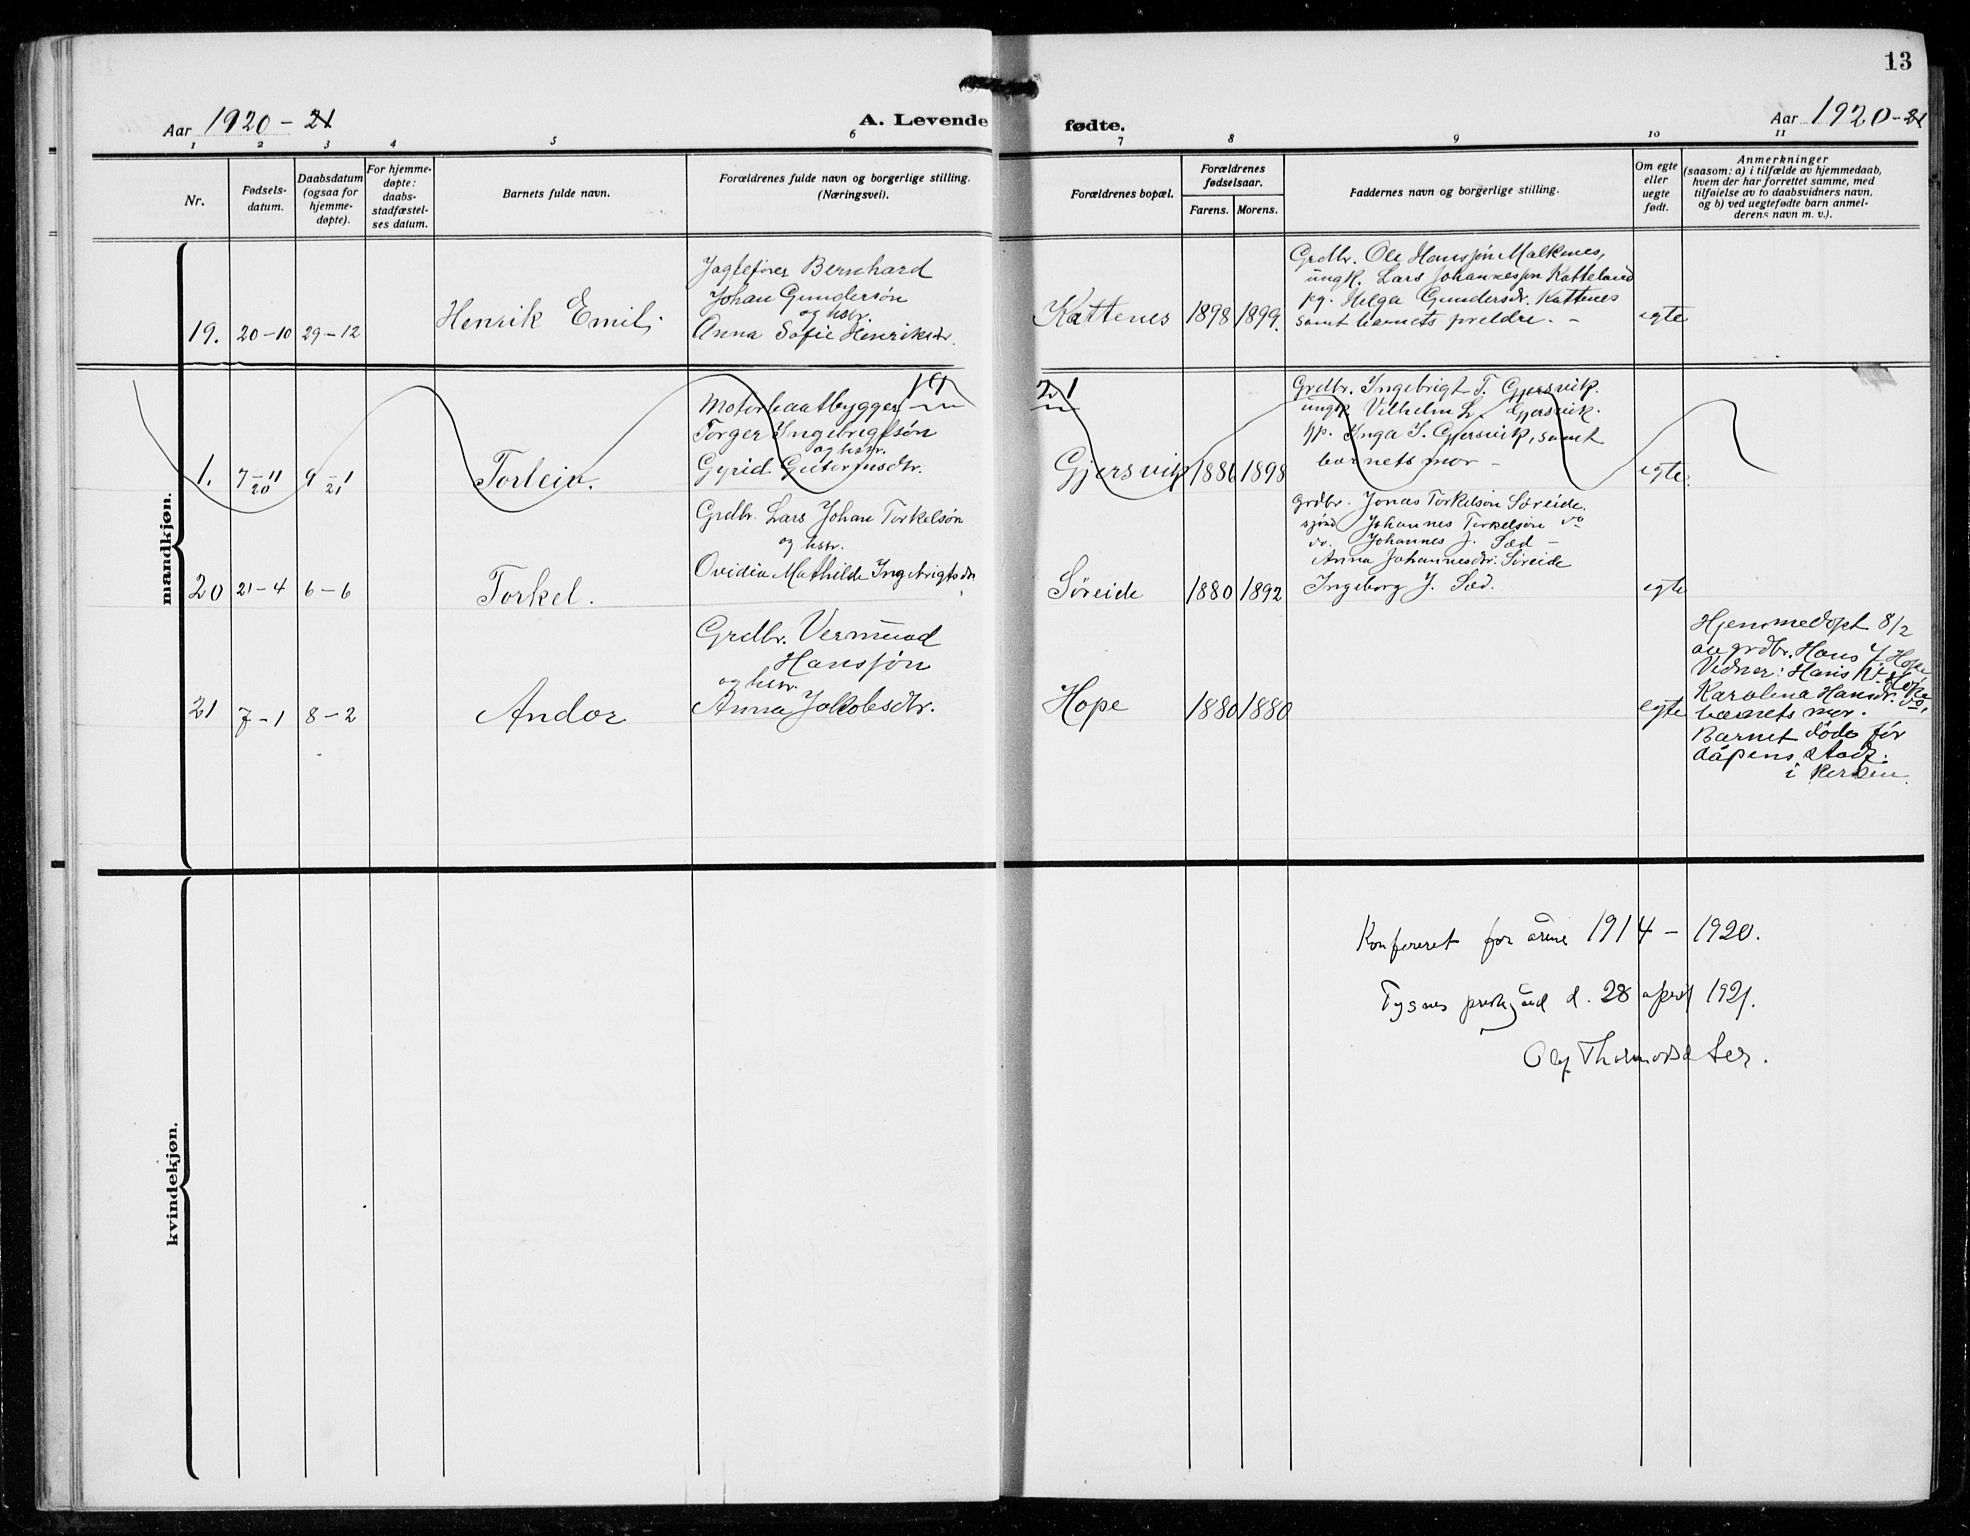 13
Aar 1920 - 21
A. Levende fødte.
Aar 1920 - 21
1 2 3 4 5 6 7 8 9 10 11
Nr.
Fødsels-
datum.
Daabsdatum
(ogsaa for
hjemme-
døpte).
For hjemme-
døpte:
daabs-
stadfæstel-
ses datum.
Barnets fulde navn.
Forældrenes fulde navn og borgerlige stilling.
(Næringsvei).
Forældrenes bopæl.
Forældrenes
fødselsaar.
Farens. Morens.
Faddernes navn og borgerlige stilling.
Om egte
eller
uegte
født.
Anmerkninger
(saasom: a) i tilfælde av hjemmedaab,
hvem der har forrettet samme, med
tilføielse av to daabsvidners navn,
og b) ved uegtefødte barn anmel-
derens navn m. v.).
mandkjøn.
19. 20-10 29-12 Henrik Emil
Jagtefører Bernhard
Johan Gundersøn
og hstr.
Anna Sofie Henriksdtr.
Kattenes 1898 1899.
Grdbr. Ole Hanssøn Malkenes,
ungk. Lars Johannessøn Katteland
pg. Helga Gundersdr. Kattenes
samt barnets foreldre. -
egte
19 21
1. 7-11 20 9-1 21 Torleiv.
Motorbaatbygger
Torger Ingebrigtsøn
og hstr.
Gyrid Guttormsdtr.
Gjersvik 1886 1898
Grdbr. Ingebrigt T. Gjersvik.
ungk. Vilhelm L. Gjersvik.
pp. Inga I. Gjersvik, samt
barnets mor -
egte.
20 21-4 6-6 Torkel.
Grdbr. Lars Johan Torkelsøn
og hstr.
Ovidia Mathilde Ingebrigtsdr.
Søreide 1880 1892
grdbr. Jonas Torkelsøn Søreide.
Johannes Torkelsøn do
do. Johannes J. Sæd -
Anna Johannesdtr. Søreide
Ingeborg J. Sæd.
egte
21 7-1 8-2 Andor
Grdbr. Vermund
Hanssøn
og hstr.
Anna Jakobsdtr.
Hope 1880 1880
egte
Hjemmedøpt 8/2
av grdbr. Hans J. Hope
Vidner: Hans
Karolina Hansdr. do.
barnets mor.
Barnet døde før
dåpens stadf.
i kirken.
kvindekjøn.
Konfereret for årene 1914 - 1920.
Tysnes prestegård d. 28 april 1921.
Olaf Thormodsæter.